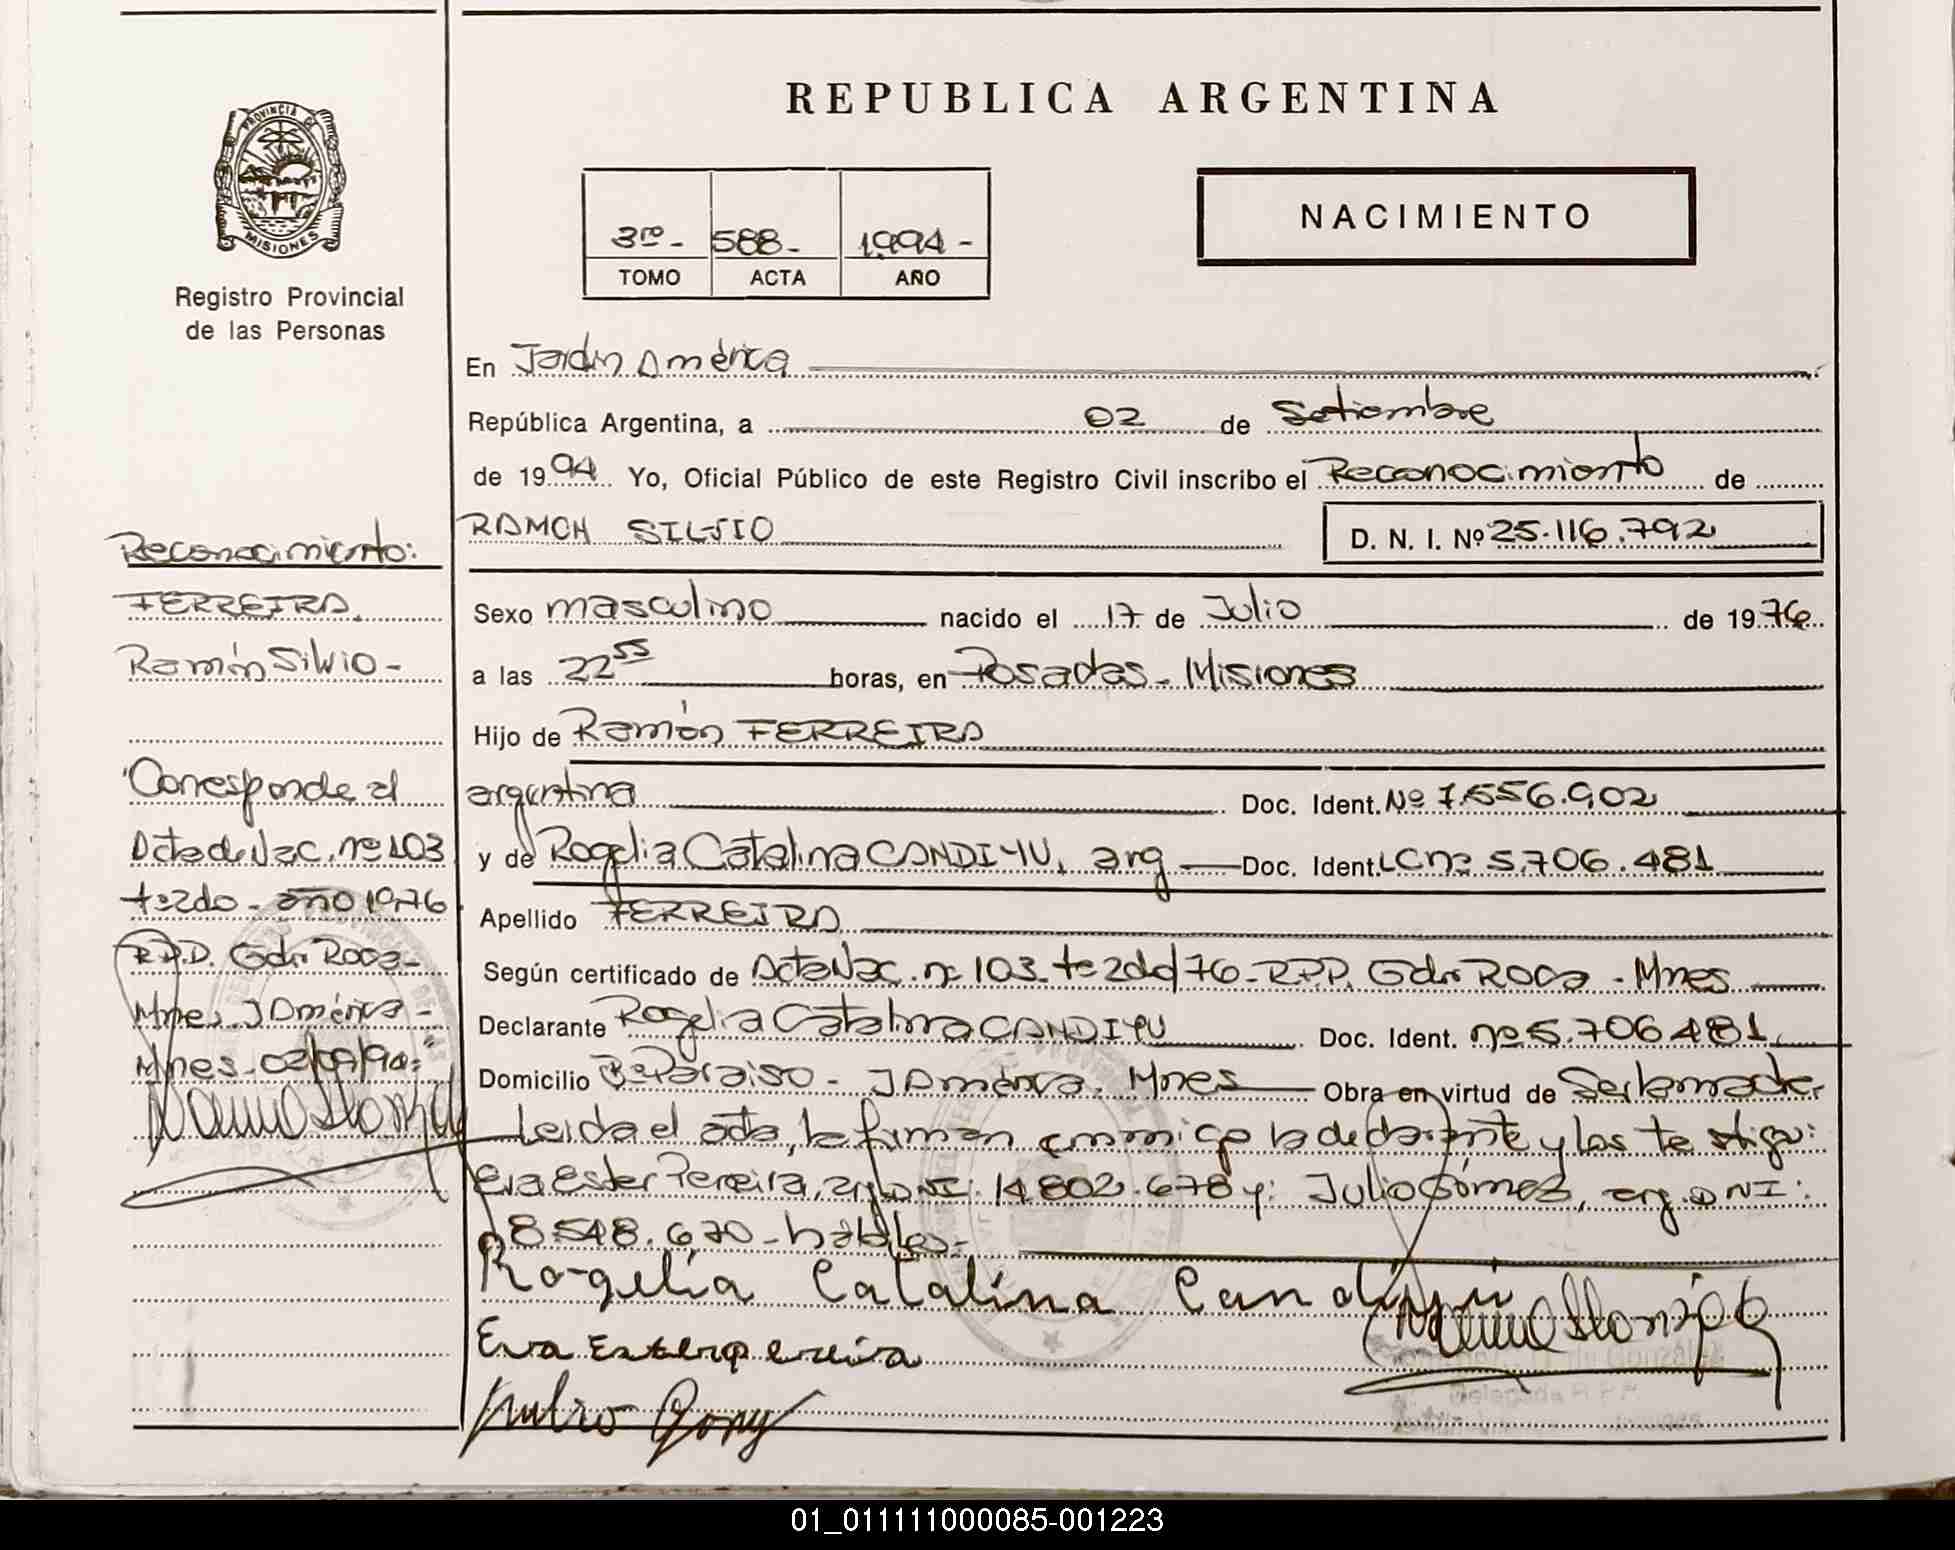 REPUBLICA ARGENTINA
PROVINCIA DE
MISIONES
Registro Provincial
de las Personas
3ro - 588 - 1.994 -
TOMO ACTA AÑO
NACIMIENTO
En Jardín América
República Argentina, a 02 de Setiembre
de 1994 Yo, Oficial Público de este Registro Civil inscribo el Reconocimiento de
RAMON SILVIO D. N. I. Nº 25.116.792
Sexo masculino nacido el 17 de Julio de 1976
a las 22 55 horas, en Posadas - Misiones
Hijo de Ramón FERREIRA
argentina Doc. Ident. Nº 7.556.902
y de Rogelia Catalina CANDIYU, arg Doc. Ident. LC nº 5.706.481
Apellido FERREIRA
Según certificado de Acta Nac. nº 103 - tº 2do/76 - R.P.P. Gdor Roca - Mnes
Declarante Rogelia Catalina CANDIYU Doc. Ident. nº 5.706.481
Domicilio Bº Paraiso - J América - Mnes Obra en virtud de Ser la madre.
Leida el acta, la firman conmigo la declarante y los testigos:
Eva Ester Pereira, arg DNI: 14.802.678 y: Julio Gómez, arg. DNI:
8.548.670 - hábiles -
Rogelia Catalina Candiyú
Eva Ester pereira
Julio Gomez
Delegada R.P.P.
Reconocimiento:
FERREIRA
Ramón Silvio -
Corresponde al
Acta de Nac. nº 103
tº 2do - año 1976
R.P.P. Gdor Roca -
Mnes. J América -
Mnes - 02/09/94 -
01_011111000085-001223